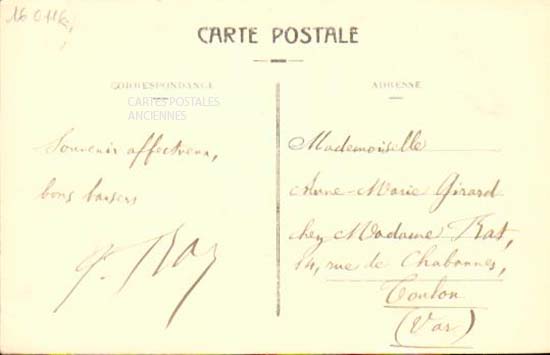 CARTE POSTALE
CORRESPONDANCE
CARTES POSTALES
ANCIENNES
Souvenir affectueux,
bons baisers
ADRESSE
Mademoiselle
Anne-Marie Girard
chez Madame Rat,
14, rue de Chabannes,
Toulon
(Var)